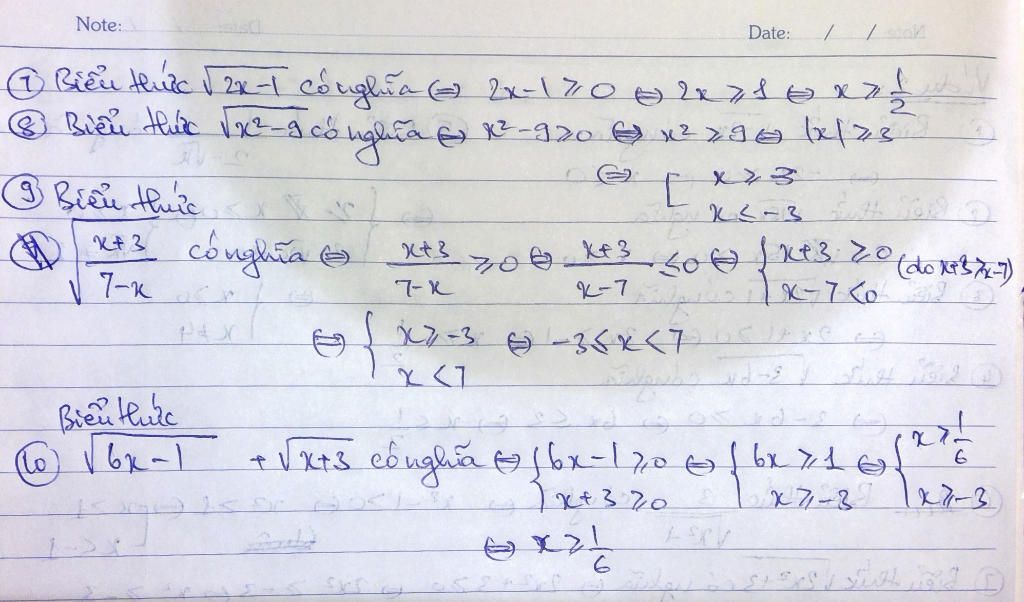 Note:
Date: / /
⑦ Biểu thức √(2x-1) có nghĩa ⇔ 2x-1 ≥ 0 ⇔ 2x ≥ 1 ⇔ x ≥ 1/2
⑧ Biểu thức √(x²-9) có nghĩa ⇔ x²-9 ≥ 0 ⇔ x² ≥ 9 ⇔ |x| ≥ 3
⇔ [ x ≥ 3
x ≤ -3
⑨ Biểu thức
√((x+3)/(7-x)) có nghĩa ⇔ (x+3)/(7-x) ≥ 0 ⇔ (x+3)/(x-7) ≤ 0 ⇔ { x+3 ≥ 0 (do x+3 ≥ x-7)
x-7 < 0
⇔ { x ≥ -3 ⇔ -3 ≤ x < 7
x < 7
Biểu thức
⑩ √(6x-1) + √(x+3) có nghĩa ⇔ { 6x-1 ≥ 0 ⇔ { 6x ≥ 1 ⇔ { x ≥ 1/6
x+3 ≥ 0 x ≥ -3 x ≥ -3
⇔ x ≥ 1/6